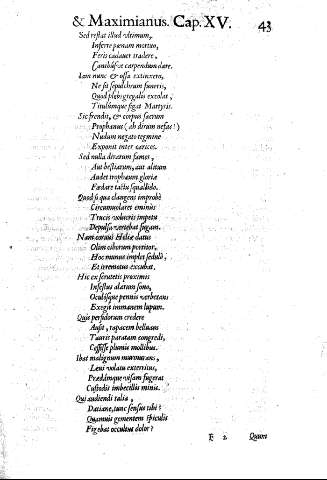 & Maximianus. Cap. XV. 43
Sed restat illud ultimum,
Inferre pœnam mortuo,
Feris cadaver tradere,
Canibusve carpendum dare.
Iam nunc & ossa extinxero,
Ne sit sepulchrum funeris,
Quod plebs gregalis excolat,
Titulumque figat Martyris.
Sic frendit, & corpus sacrum
Prophanus (ah dirum nefas!)
Nudum negato tegmine
Exponit inter carices.
Sed nulla dirarum fames,
Aut bestiarum, aut alitum
Audet trophæum gloriæ
Fœdare tactu squallido.
Quod si qua clangens improbè
Circumvolaret eminus
Trucis volucris impetu
Depulsa vertebat fugam.
Nam corvus Heliæ datus
Olim ciborum portitor,
Hoc munus implet sedulò,
Et irremotus excubat.
Hic ex frutetis proximis
Infestus alarum sono,
Oculisque pennis verberans
Exegit immanem lupum.
Quis perfidorum credere
Ausit, rapacem belluam
Tauris paratam congredi,
Cessisse plumis mollibus.
Ibat malignum murmurans,
Levi volatu exterritus,
Prædámque visam fugerat
Custodis imbecillis minis.
Qui audiendi talia,
Datiane, tunc sensus tibi?
Quantis gementem spiculis
Figebat occultus dolor?
F 2 Quum